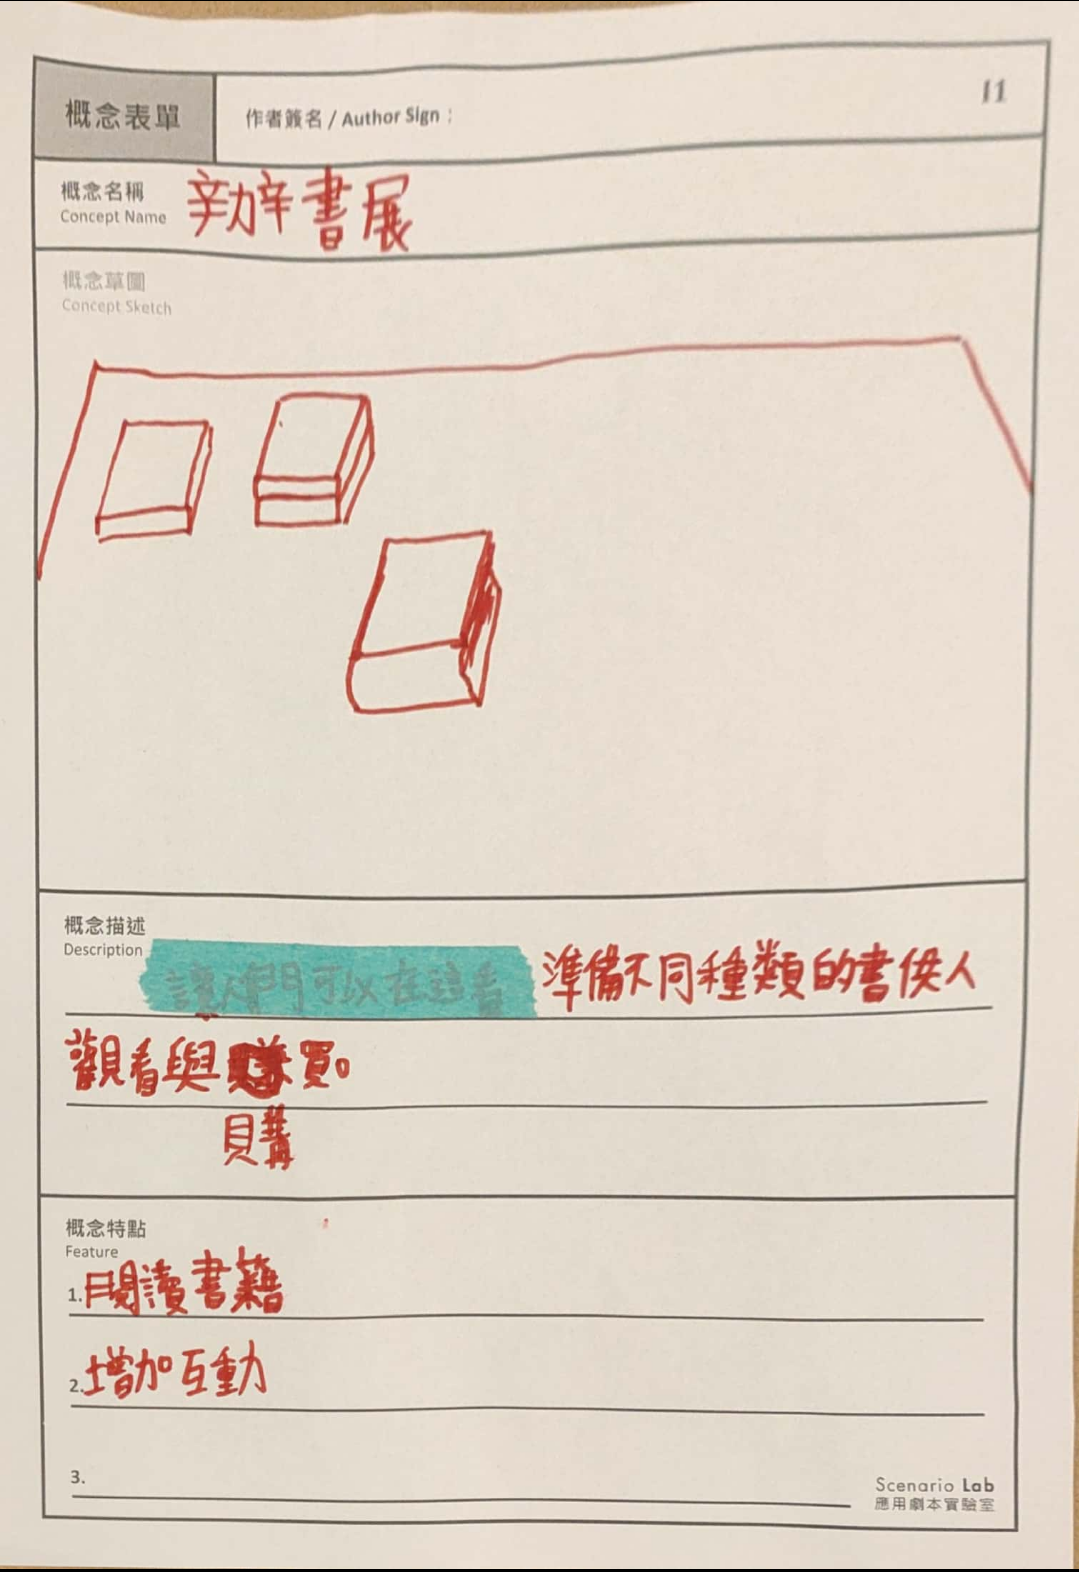 11
概念表單
作者簽名 / Author Sign :
概念名稱
Concept Name
辦書展
概念草圖
Concept Sketch
概念描述
Description
讓人們可以在這看 準備不同種類的書供人
觀看與買。
購
概念特點
Feature
1. 閱讀書籍
2. 增加互動
3.
Scenario Lab
應用劇本實驗室